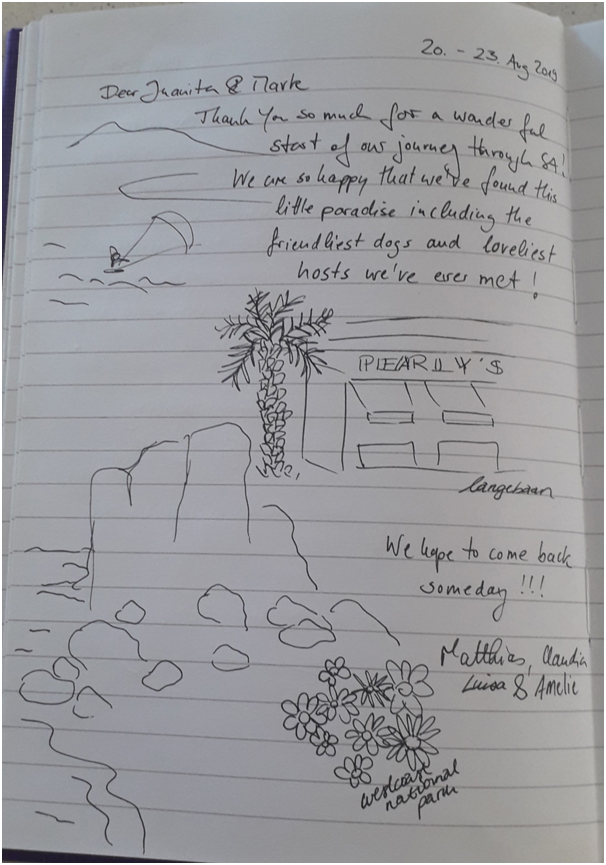 20. - 23. Aug 2019
Dear Juanita & Mark
Thank You so much for a wonderful
start of our journey through SA!
We are so happy that we've found this
little paradise including the
friendliest dogs and loveliest
hosts we've ever met!
PEARLY'S
Langebaan
We hope to come back
someday!!!
Matthias, Claudia
Luisa & Amelie
westcoast
national
park